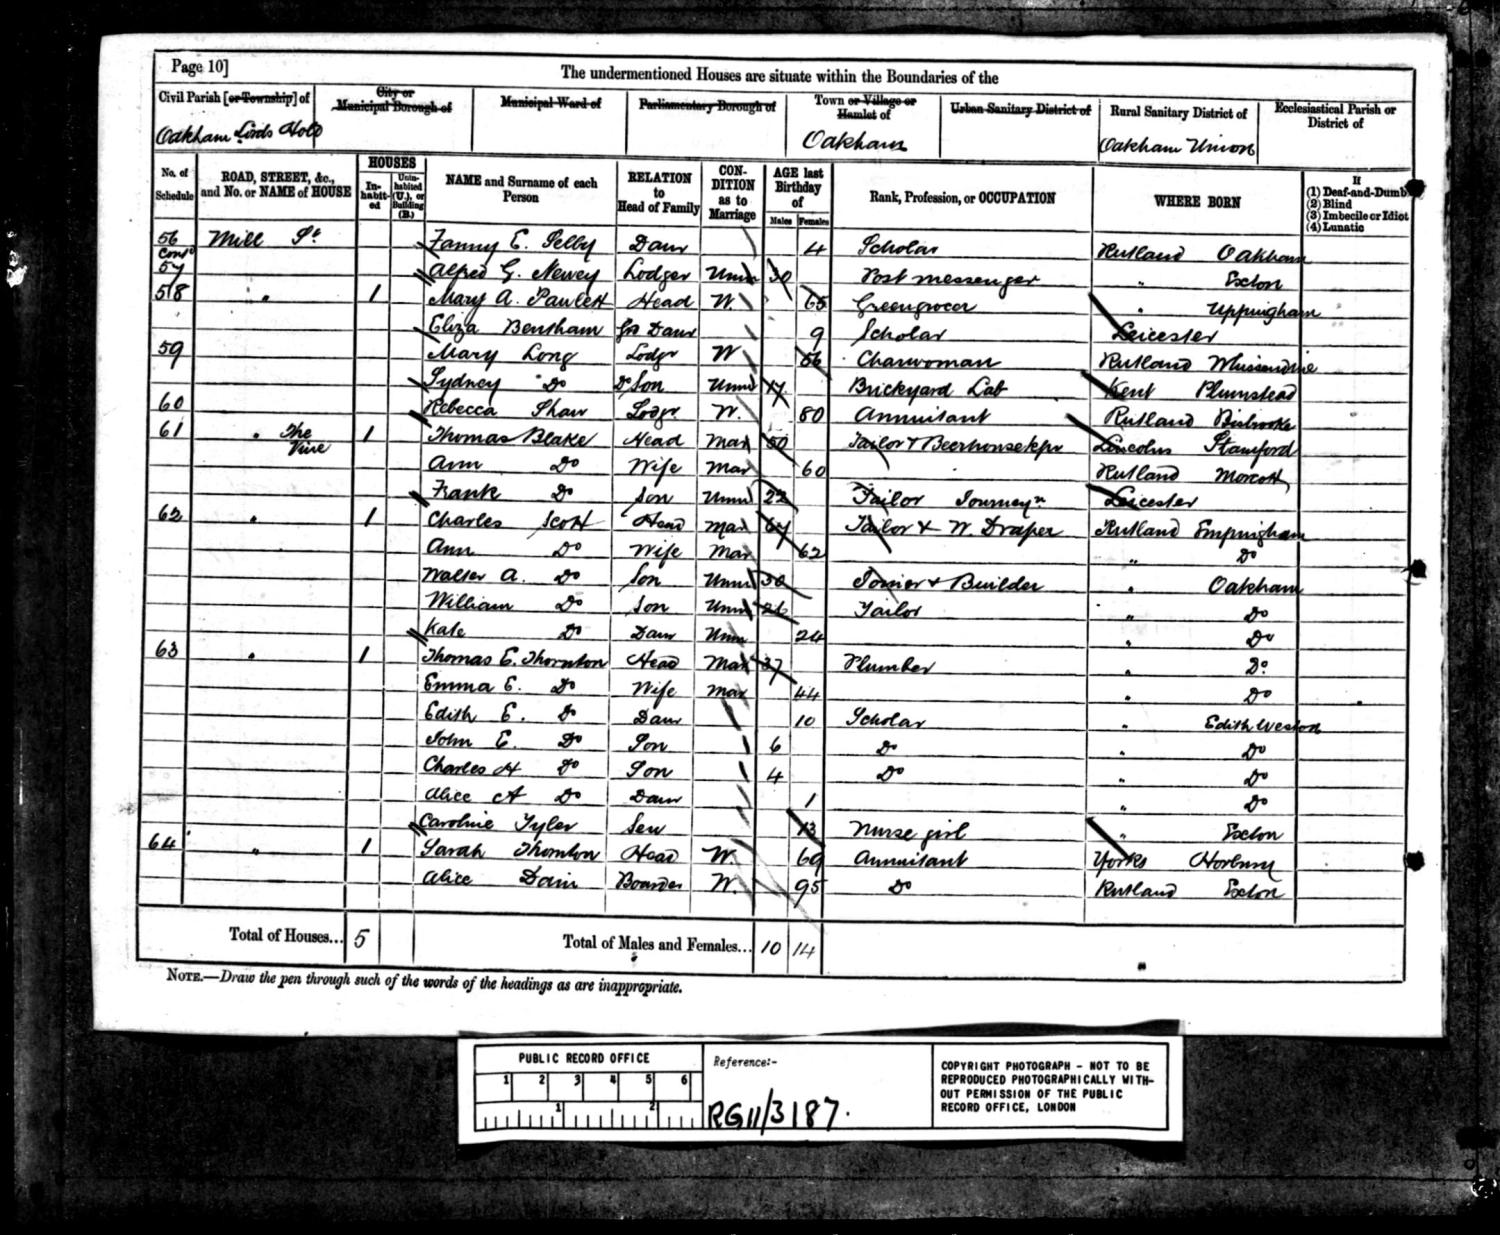 Page 10]
The undermentioned Houses are situate within the Boundaries of the
Civil Parish [or Township] of
City or Municipal Borough of
Municipal Ward of
Parliamentary Borough of
Town or Village or Hamlet of
Urban Sanitary District of
Rural Sanitary District of
Ecclesiastical Parish or District of
Oakham Lords Hold
Oakham
Oakham Union
No. of Schedule
ROAD, STREET, &c., and No. or NAME of HOUSE
HOUSES
In-habit-ed
Unin-habited (U.), or Building (B.)
NAME and Surname of each Person
RELATION to Head of Family
CON-DITION as to Marriage
AGE last Birthday of
Males Females
Rank, Profession, or OCCUPATION
WHERE BORN
If
(1) Deaf-and-Dumb
(2) Blind
(3) Imbecile or Idiot
(4) Lunatic
56 Mill St Fanny E. Selby Daur 4 Scholar Rutland Oakham
Contd
57 Alfred G. Newey Lodger Unm 30 Post messenger " Exton
58 " 1 Mary A. Paulett Head W. 65 Greengrocer " Uppingham
Eliza Bentham Gd Daur 9 Scholar Leicester
59 Mary Long Lodgr W 56 Charwoman Rutland Whissendine
Sydney Do Do Son Unm 17 Brickyard Lab Kent Plumstead
60 Rebecca Shaw Lodgr W. 80 Annuitant Rutland Bisbrooke
61 " The Vine 1 Thomas Blake Head Mar 50 Tailor & Beerhousekpr Lincoln Stamford
Ann Do Wife Mar 60 Rutland Morcott
Frank Do Son Unm 22 Tailor Journeyn Leicester
62 " 1 Charles Scott Head Mar 64 Tailor & W. Draper Rutland Empingham
Ann Do Wife Mar 62 " Do
Walter A. Do Son Unm 30 Joiner & Builder " Oakham
William Do Son Unm 26 Tailor " Do
Kate Do Daur Unm 24 " Do
63 " 1 Thomas E. Thornton Head Mar 37 Plumber " Do
Emma E. Do Wife Mar 44 " Do
Edith E. Do Daur 10 Scholar " Edith Weston
John E. Do Son 6 Do " Do
Charles H Do Son 4 Do " Do
Alice A Do Daur 1 " Do
Caroline Tyler Serv 13 Nurse girl " Exton
64 " 1 Sarah Thornton Head W. 69 Annuitant Yorks Horbury
Alice Dain Boarder W. 95 Do Rutland Exton
Total of Houses... 5
Total of Males and Females... 10 14
NOTE.—Draw the pen through such of the words of the headings as are inappropriate.
PUBLIC RECORD OFFICE
1 2 3 4 5 6
1 2
Reference:-
RG11/3187.
COPYRIGHT PHOTOGRAPH - NOT TO BE
REPRODUCED PHOTOGRAPHICALLY WITH-
OUT PERMISSION OF THE PUBLIC
RECORD OFFICE, LONDON